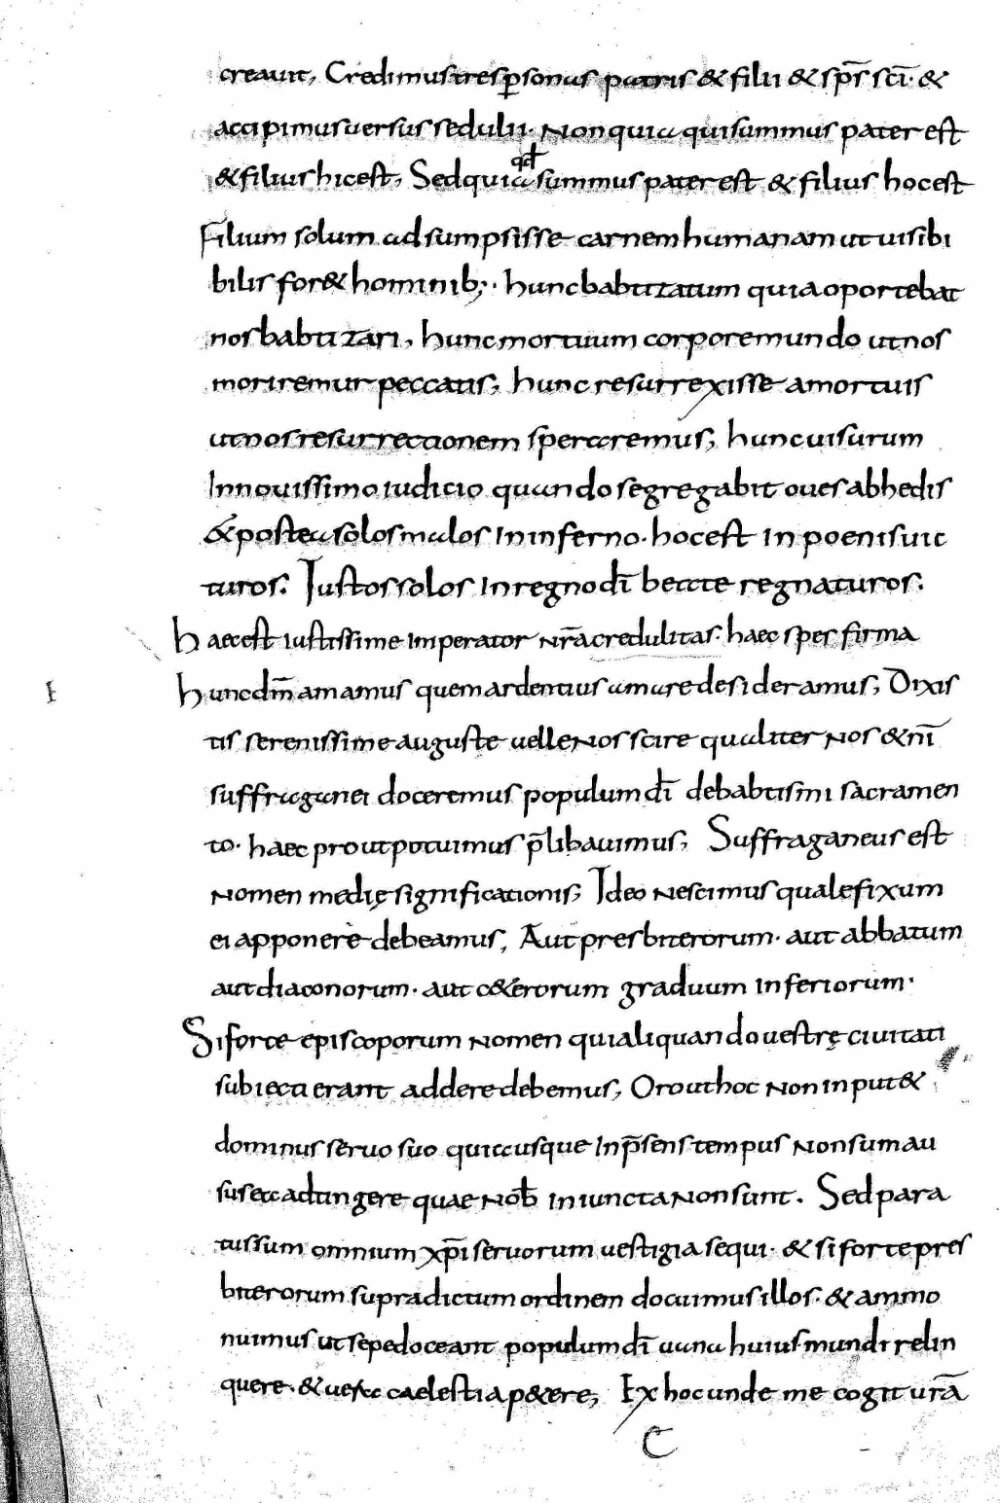 creauit, Credimus tres p̱sonas patris & filii & sp̄s sc̄i· &
accipimus uersus sedulii· Non quia qui summus pater est
& filius hic est, Sed quia qđ summus pater est & filius hoc est
Filium solum adsumpsisse carnem humanam ut uisibi
bilis for& hominib;· hunc babtizatum quia oportebat
nos babtizari, hunc mortuum corpore mundo ut nos
moriremur peccatis, hunc resurrexisse a mortuis
ut nos resurrectionem speraremus; hunc uisurum
In nouissimo iudicio quando segregabit oues ab hedis
& postea solos malos In inferno· hoc est In poenis uic
turos. Iustos solos In regno dī beate regnaturos.
haec est iustissime Imperator nr̄a credulitas· haec spes firma
hunc dm̄ amamus quem ardentius amare desideramus, Dixis
tis serenissime auguste uelle Nos scire qualiter Nos & nr̄i
suffraganei doceremus populum dī de babtismi sacramen
to· haec prout potuimus p̄libauimus, Suffraganeus est
Nomen medię significationis, Ideo Nescimus quale fixum
ei apponere debeamus, Aut presbiterorum· aut abbatum
aut diaconorum· aut c&erorum graduum Inferiorum·
Si forte episcoporum Nomen qui aliquando uestrę ciuitati
subiecti erant addere debemus, Oro ut hoc Non input&
dominus seruo suo quia usque In p̄sens tempus Non sum au
sus ea adtingere quae Nob̄ Iniuncta Non sunt. Sed para
tus sum omnium xp̄i seruorum uestigia sequi· & si forte pres
biterorum supradictum ordinem docuimus illos· & ammo
nuimus ut sepe doceant populum dī uana huius mundi relin
quere· & uera caelestia p&ere, Ex hoc unde me cogit ur̄a
C